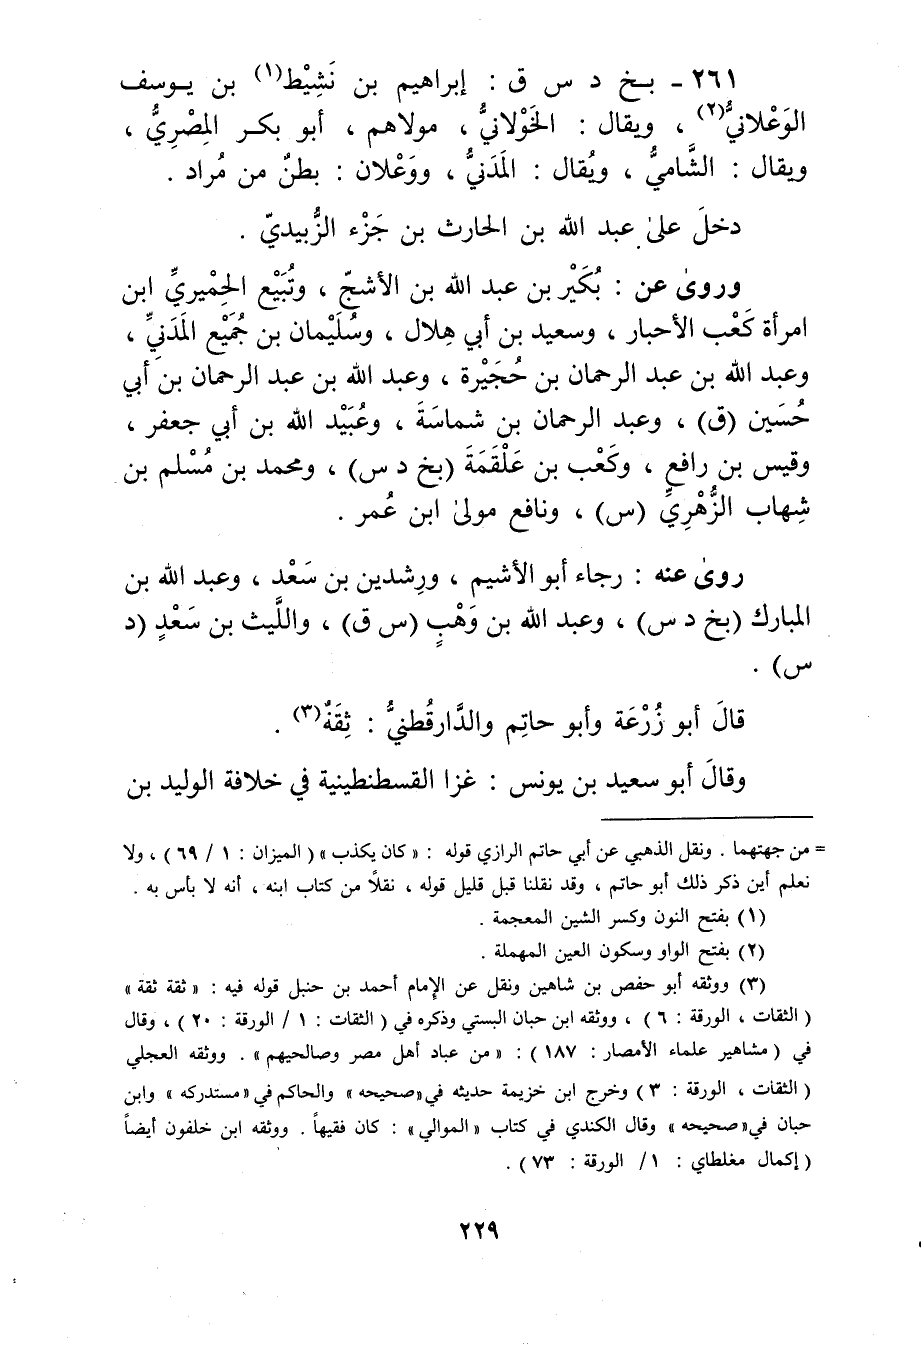 ٢٦١ - بخ د س ق : إبراهيم بن نَشِيْط(١) بن يوسف
الوَعْلانيُّ(٢) ، ويقال : الخَوْلانيُّ ، مولاهم ، أبو بكر المِصْرِيُّ ،
ويقال : الشَّاميُّ ، ويُقال : المَدَنيُّ ، ووَعْلان : بطنٌ من مُراد .
دخلَ علىٰ عبد الله بن الحارث بن جَزْء الزُّبيديّ .
وروىٰ عن : بُكَيْر بن عبد الله بن الأشجّ ، وتُبَيْع الحِمْيريِّ ابن
امرأة كَعْب الأحبار ، وسعيد بن أبي هِلال ، وسُلَيْمان بن جُمَيْع المَدَنيِّ ،
وعبد الله بن عبد الرحمان بن حُجَيْرة ، وعبد الله بن عبد الرحمان بن أبي
حُسَين (ق) ، وعبد الرحمان بن شماسَةَ ، وعُبَيْد الله بن أبي جعفر ،
وقيس بن رافع ، وكَعْب بن عَلْقَمَةَ (بخ د س) ، ومحمد بن مُسْلم بن
شِهاب الزُّهْرِيِّ (س) ، ونافع مولىٰ ابن عُمر .
روىٰ عنه : رجاء أبو الأشيم ، ورِشدين بن سَعْد ، وعبد الله بن
المبارك (بخ د س) ، وعبد الله بن وَهْبٍ (س ق) ، واللَّيث بن سَعْدٍ (د
س) .
قالَ أبو زُرْعَة وأبو حاتِم والدَّارقُطنيُّ : ثِقَةٌ(٣) .
وقالَ أبو سعيد بن يونس : غزا القسطنطينية في خلافة الوليد بن
= من جهتهما . ونقل الذهبي عن أبي حاتم الرازي قوله : « كان يكذب » ( الميزان : ١ / ٦٩ ) ، ولا
نعلم أين ذكر ذلك أبو حاتم ، وقد نقلنا قبل قليل قوله ، نقلاً من كتاب ابنه ، أنه لا بأس به .
(١) بفتح النون وكسر الشين المعجمة .
(٢) بفتح الواو وسكون العين المهملة .
(٣) ووثقه أبو حفص بن شاهين ونقل عن الإمام أحمد بن حنبل قوله فيه : « ثقة ثقة »
( الثقات ، الورقة : ٦ ) ، ووثقه ابن حبان البستي وذكره في ( الثقات : ١ / الورقة : ٢٠ ) ، وقال
في ( مشاهير علماء الأمصار : ١٨٧ ) : « من عباد أهل مصر وصالحيهم » . ووثقه العجلي
( الثقات ، الورقة : ٣ ) وخرج ابن خزيمة حديثه في « صحيحه » والحاكم في « مستدركه » وابن
حبان في « صحيحه » وقال الكندي في كتاب « الموالي » : كان فقيهاً . ووثقه ابن خلفون أيضاً
( إكمال مغلطاي : ١ / الورقة : ٧٣ ) .
٢٢٩